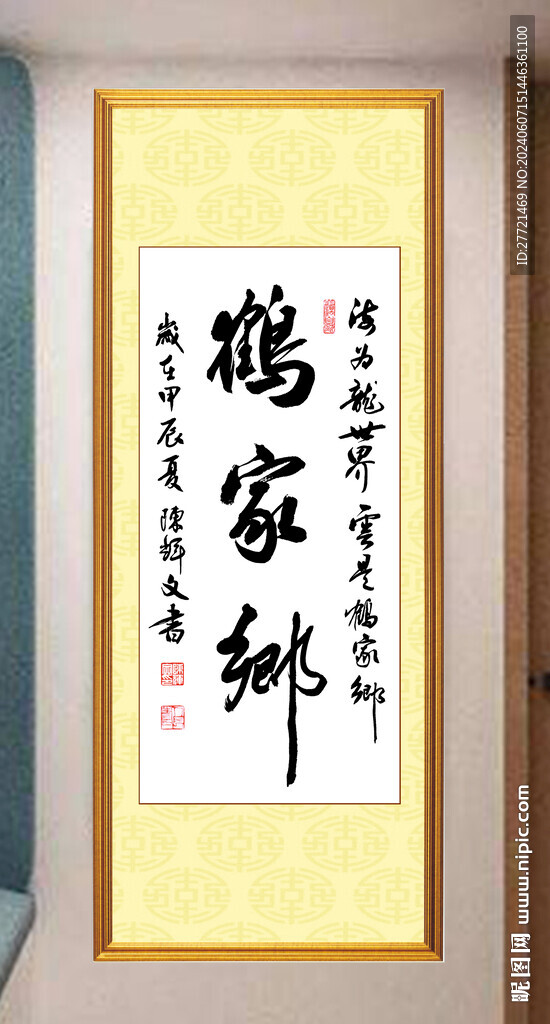 海为龍世界 雲是鶴家鄉
鶴家鄉
歲在甲辰夏 陳輝文書
ID:27721469 NO:20240607151446361100
昵图网 www.nipic.com